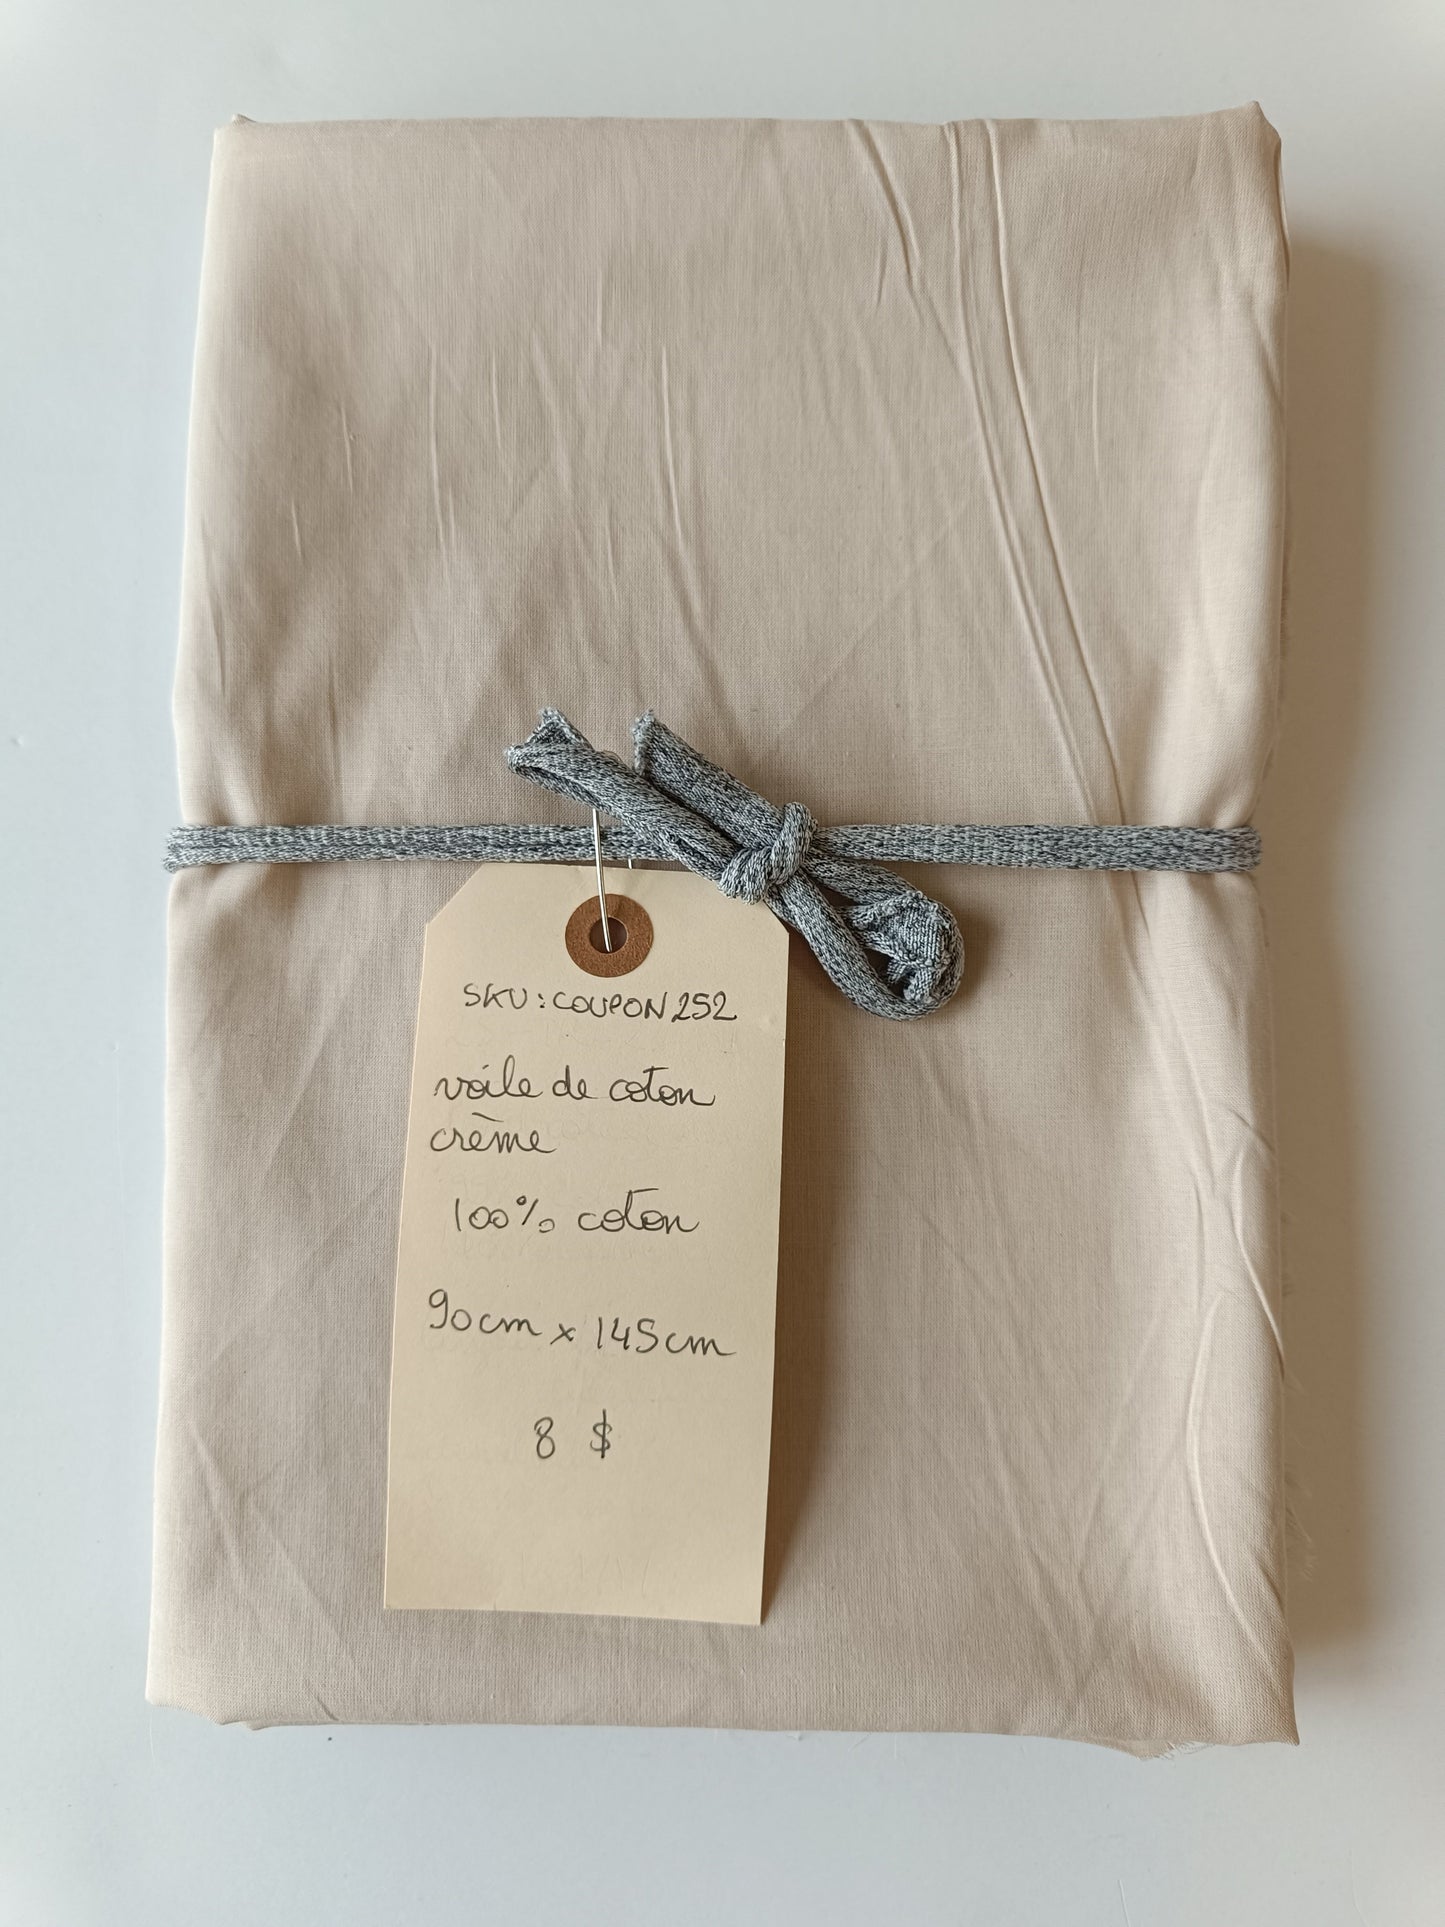 SKU: COUPON252
voile de coton
crème
100% coton
90cm x 145cm
8 $